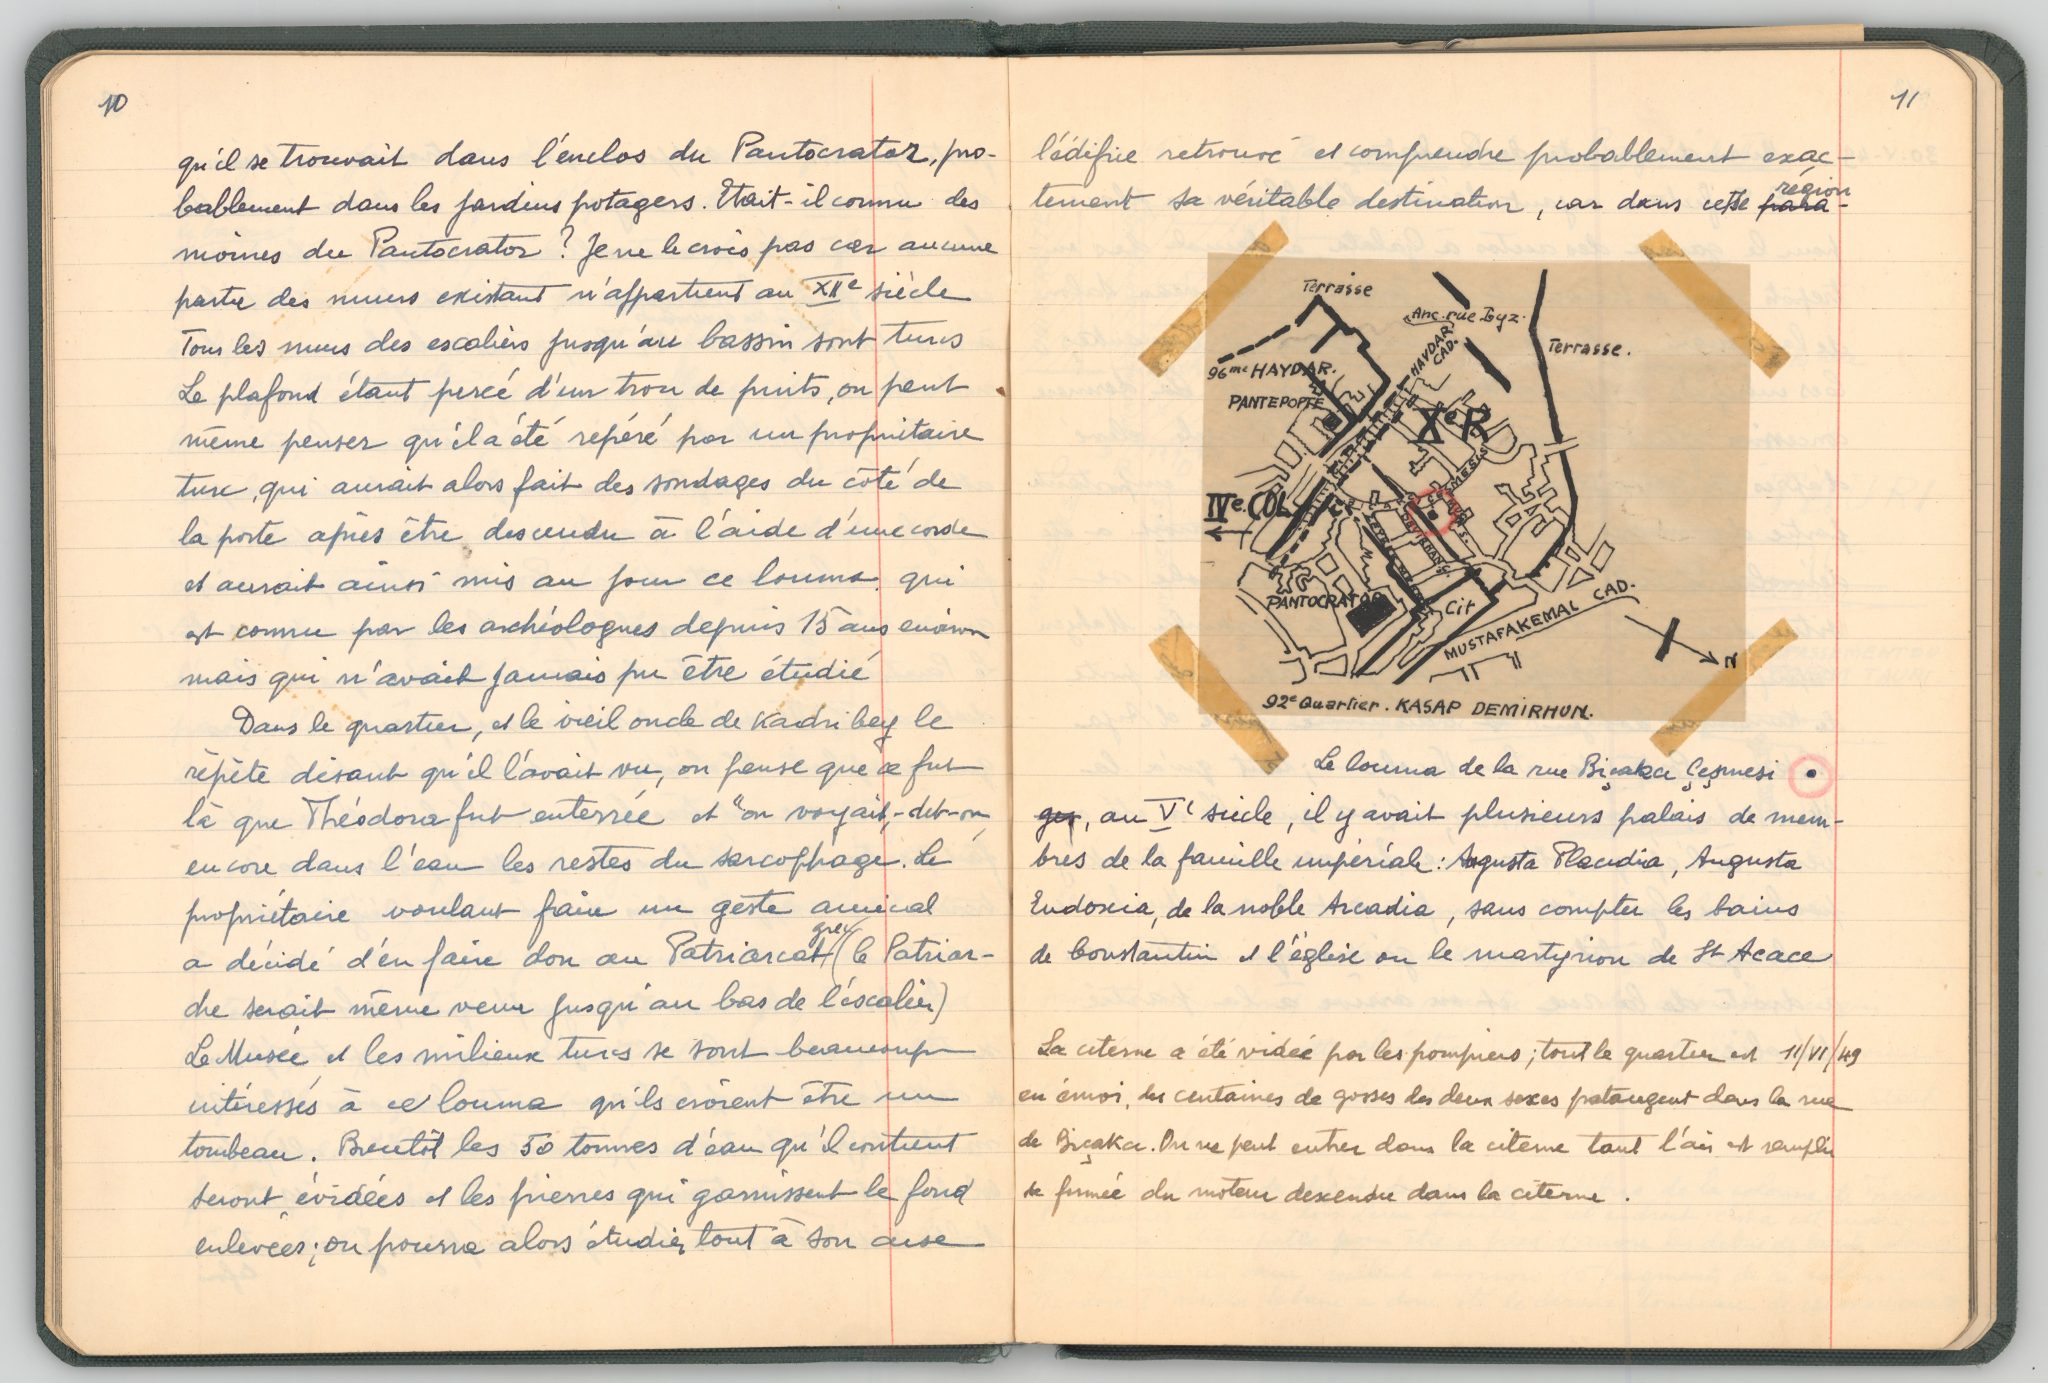 10
qu'il se trouvait dans l'enclos du Pantocrator, pro-
bablement dans les jardins potagers. Etait-il connu des
moines du Pantocrator ? Je ne le crois pas car aucune
partie des murs existant n'appartient au XIIe siècle
Tous les murs des escaliers jusqu'au bassin sont turcs
Le plafond étant percé d'un trou de puits, on peut
même penser qu'il a été repéré par un propriétaire
turc, qui aurait alors fait des sondages du côté de
la porte après être descendu à l'aide d'une corde
et aurait ainsi mis au jour ce louma qui
est connu par les archéologues depuis 15 ans environ
mais qui n'avait jamais pu être étudié
Dans le quartier, et le vieil oncle de Kadri bey le
répète disant qu'il l'avait vu, on pense que ce fut
là que Théodora fut enterrée et "on voyait,-dit-on,
encore dans l'eau les restes du sarcophage. Le
propriétaire voulant faire un geste amical
a décidé d'en faire don au Patriarcat grec (le Patriar-
che serait même venu jusqu'au bas de l'escalier)
Le Musée et les milieux turcs se sont beaucoup
intéressés à ce louma qu'ils croient être un
tombeau. Bientôt les 50 tonnes d'eau qu'il contient
seront évidées et les pierres qui garnissent le fond
enlevées; on pourra alors étudier tout à son aise
11
l'édifice retrouvé et comprendre probablement exac-
tement sa véritable destination, car dans cette para- région
Terrasse
Anc. rue Byz.
Terrasse.
HAYDAR CAD.
96me HAYDAR.
PANTEPOPTE
Xe R
IVe. COL
PANTOCRATOR
Cit
MUSTAFAKEMAL CAD.
N
92e Quartier. KASAP DEMIRHUN.
Le louma de la rue Bıçakcı Çeşmesi
ges, au Ve siècle, il y avait plusieurs palais de mem-
bres de la famille impériale : Augusta Placidia, Augusta
Eudoxia, de la noble Arcadia, sans compter les bains
de Constantin et l'église ou le martyrion de St Acace
La citerne a été vidée par les pompiers; tout le quartier est 11/VI/49
en émoi, des centaines de gosses des deux sexes pataugent dans la rue
de Bıçakcı. On ne peut entrer dans la citerne tant l'air est rempli
de fumée du moteur descendu dans la citerne.